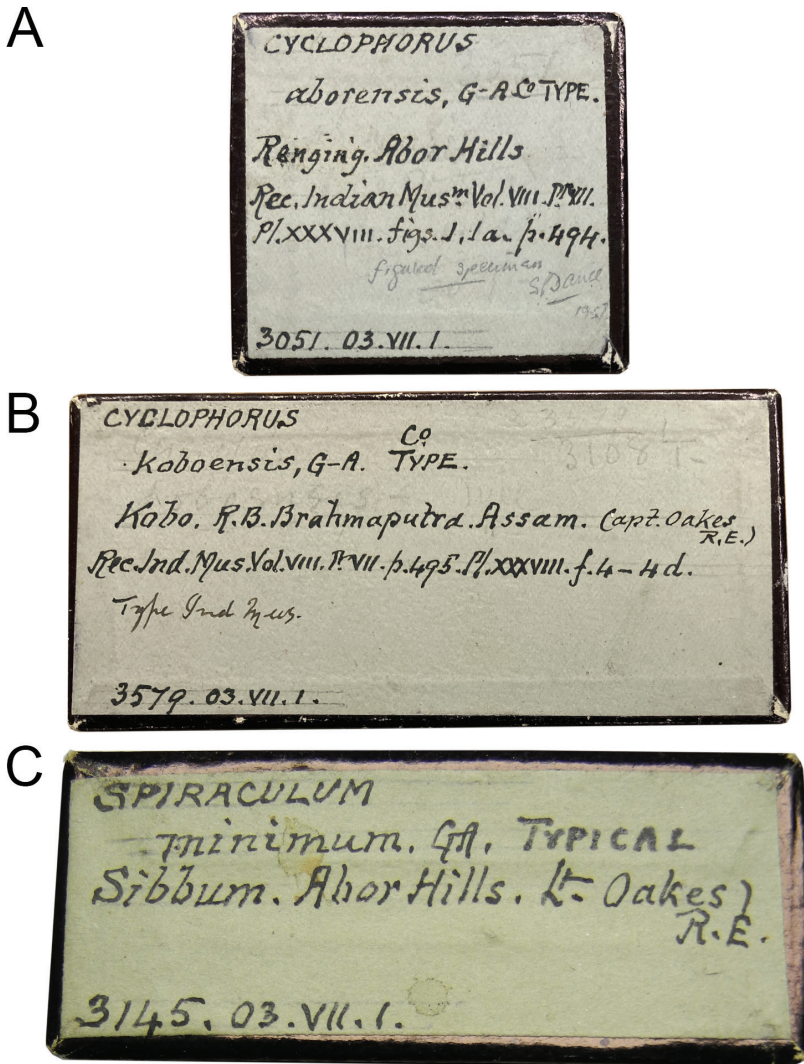 A
CYCLOPHORUS
aborensis, G-A Co TYPE.
Renging. Abor Hills
Rec. Indian Musm. Vol. VIII. Pt VII.
Pl. XXXVIII. figs. 1, 1a. p. 494.
figured specimen
S.P. Dance
1957
3051. 03. VII. 1.
B
CYCLOPHORUS
koboensis, G-A. Co TYPE.
Kobo. R.B. Brahmaputra. Assam. (Capt. Oakes
R.E.)
Rec. Ind. Mus. Vol. VIII. Pt VII. p. 495. Pl. XXXVIII. f. 4-4d.
Type Ind Mus.
3579. 03. VII. 1.
C
SPIRACULUM
minimum. GA. TYPICAL
Sibbum. Abor Hills. Lt. Oakes)
R.E.
3145. 03. VII. 1.